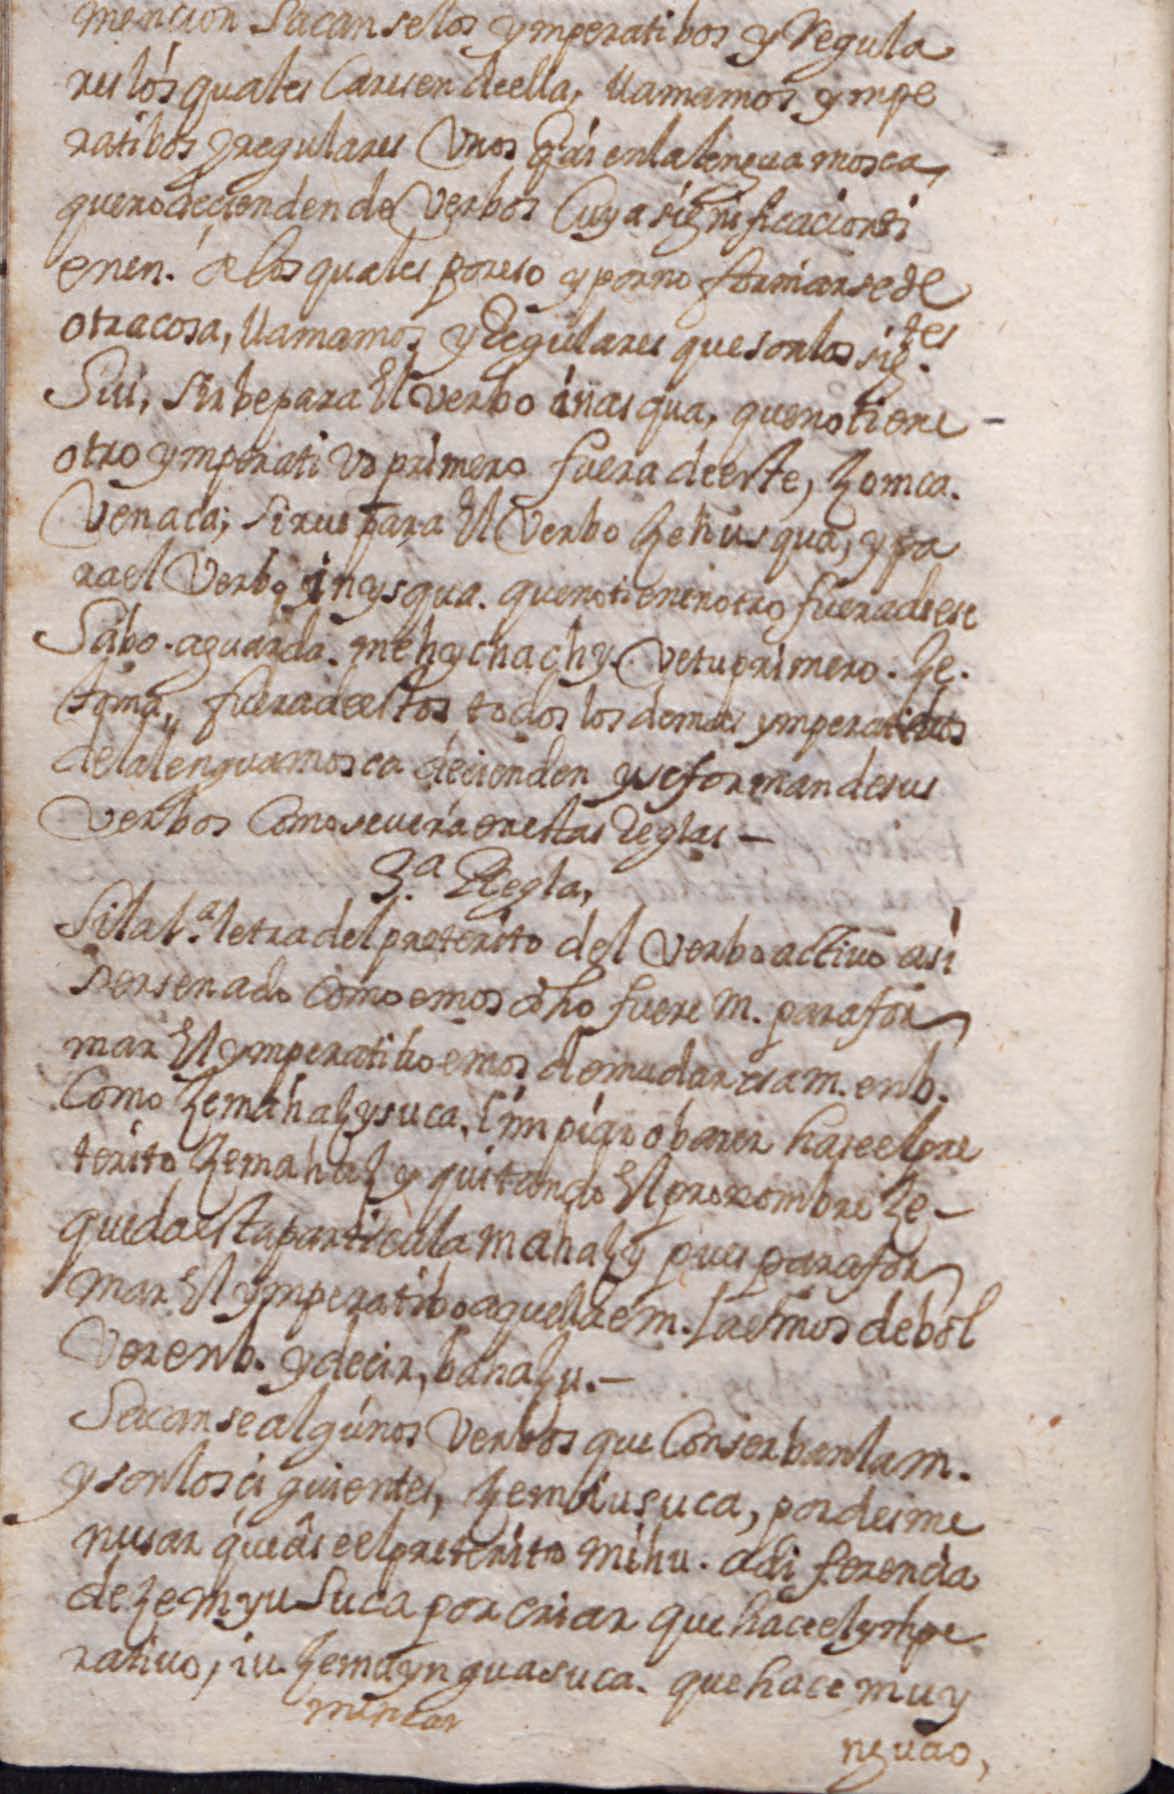 mencion Sacanse los ymperatibos y Regula
res los quales Caresen de ella, llamamos ympe
ratibos yregulares Unos q̃ ai en la lengua mosca,
que no decienden de Verbos Cuya significacion ti
enen. a los quales por eso y por no formarse de
otra cosa, llamamos yRegulares que son los sig.tes
Sui, Sirbe para El verbo inasqua, que no tiene –
otro ymperativo primero fuera de este, homca.
Ven aca; Sirue para El Verbo zehusqua, y pa
ra el Verbo inysqua. que no tienen otro fuera de ese
Sabo. aguarda. mehychachy. Ve tu primero. ze.
toma, fuera de estos todos los demas ymperatibos
de la lengua mosca decienden y se forman de sus
Verbos Como se uera en estas Reglas –
3.a Regla,
Si la 1.a letra del preterito del Verbo actiuo asi
sersenado como emos dho fuere m. para for
mar El ymperatibo emos de mudar esa m. en b.
Como zemahazysuca. limpiar o barer hase el pre
terito zemahazy quitando El pronombre ze –
queda esta particula mahazy pues para for
mar El ymperatibo aquella m. la emos de bol
Ver en b. y decir, bahazu. –
Sacanse algunos Verbos que Conserban la m.
y son los ciguientes, zemiusuca, por desme
nusar que ase el preterito mihu. a diferencia
de zemyusuca por criar que hace el ympe
ratiuo, iu zemaynguasuca. que hace muy
menear
nguao,